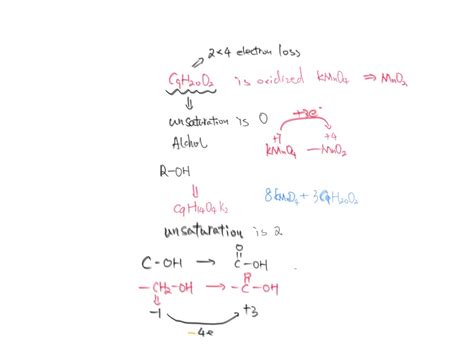 2×4 electron loss
C9H20O2 is oxidized KMnO4 ⇒ MnO2
unsaturation is 0
+3e⁻
Alchol
+7 +4
KMnO4 — MnO2
R-OH
8KMnO4 + 3C9H20O2
C9H14O4K2
unsaturation is 2
O
C-OH → C-OH
-CH2-OH → -C-OH
-1 +3
-4e